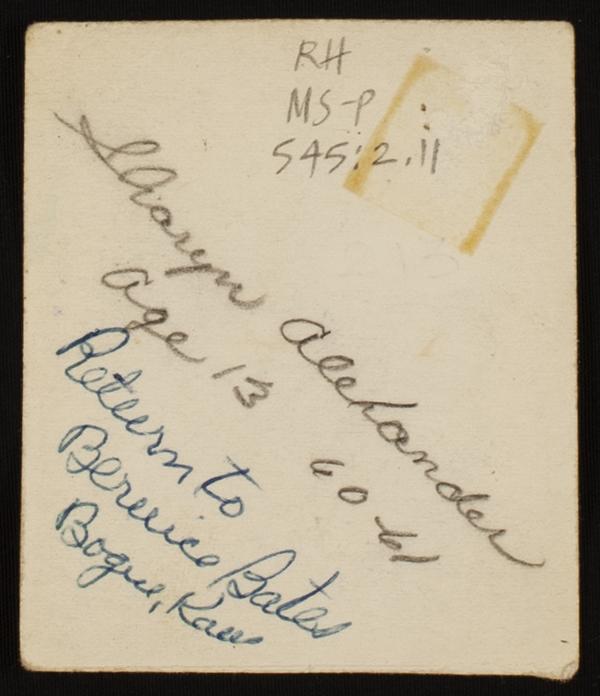 RH
MS-P
545:2.11
Sharyn Alexander
age 13 60-61
Return to
Berniece Bates
Bogue, Kans